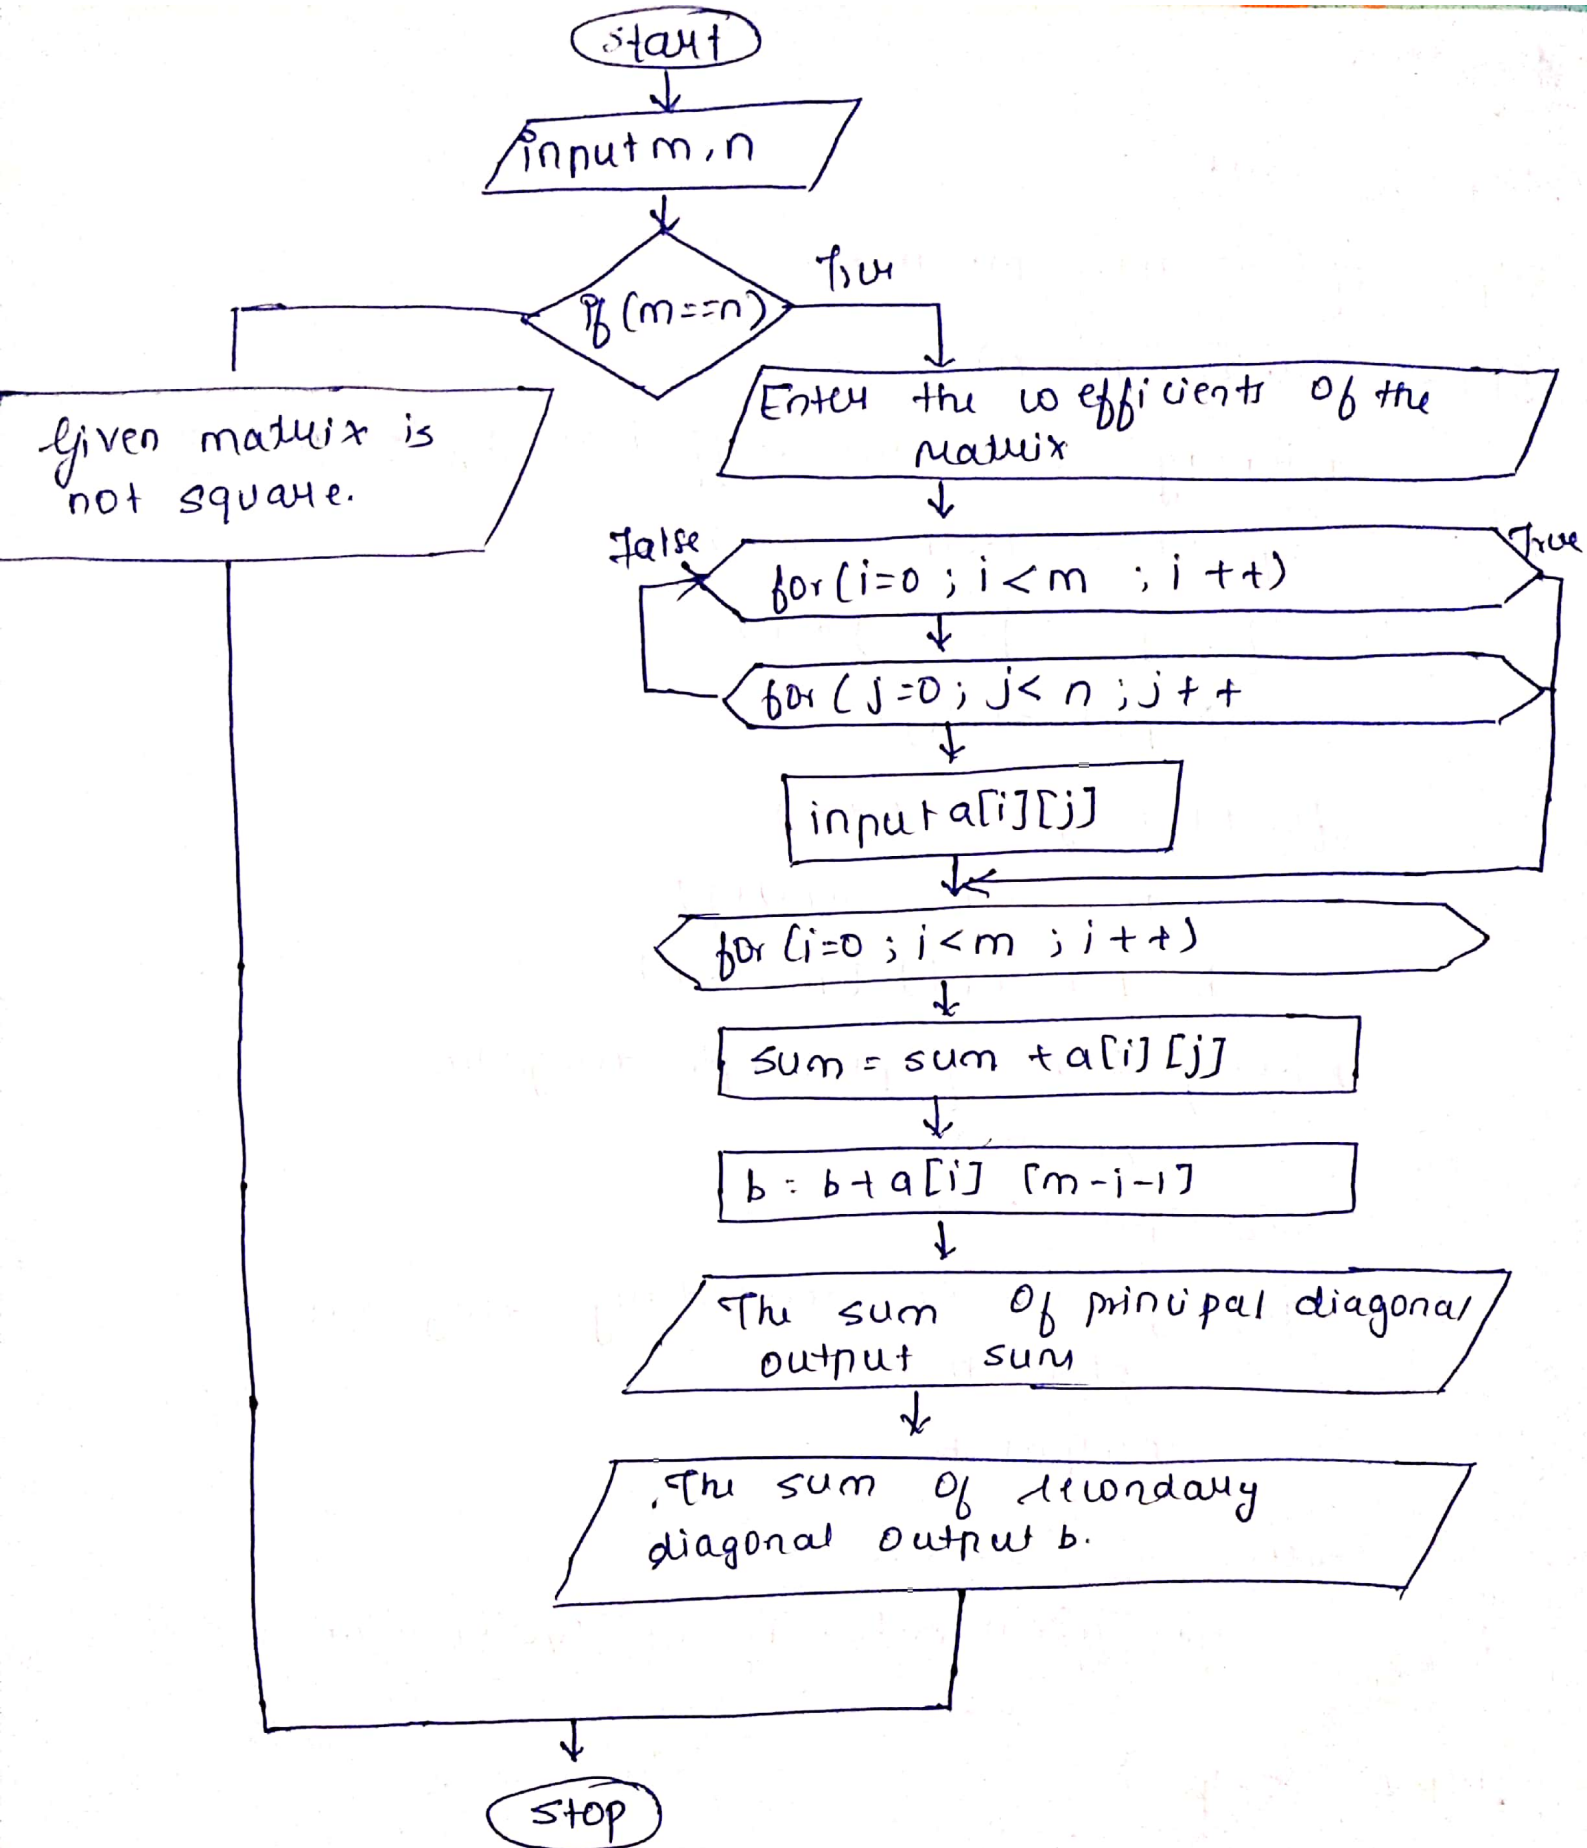 start
input m,n
if (m==n)
True
Given matrix is
not square.
Enter the coefficients of the
Matrix
False
True
for(i=0 ; i<m ; i ++)
for ( j=0 ; j< n ; j + +
input a[i][j]
for (i=0 ; i<m ; i ++)
sum = sum + a[i] [j]
b = b+ a[i] [m-i-1]
The sum of principal diagonal
output sum
The sum of secondary
diagonal output b.
stop